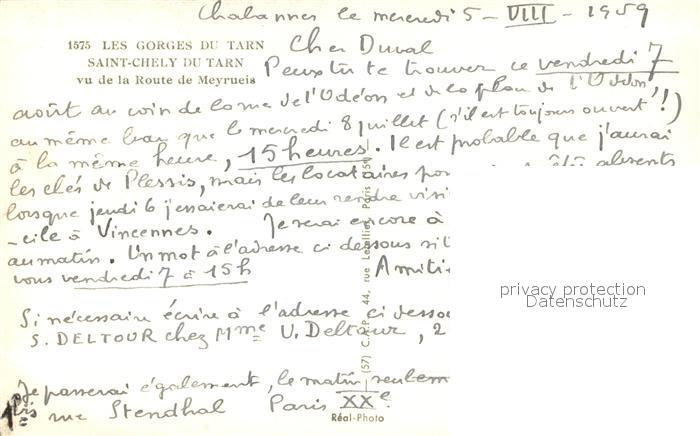 Chabannes le mercredi 5 - VIII - 1959
1575 LES GORGES DU TARN
SAINT-CHELY DU TARN
vu de la Route de Meyrueis
Cher Duval
Peux tu te trouver ce vendredi 7
août au coin de la rue de l'Odéon et de la place de l'Odéon,
au même bar que le mercredi 8 juillet (s'il est toujours ouvert !)
à la même heure, 15 heures. Il est probable que j'aurai
les clés de Plessis, mais les locataires absents
lorsque jeudi 6 j'essaierai de leur rendre visi
-cile à Vincennes. Je serai encore à
au matin. Un mot à l'adresse ci dessous
vous vendredi 7 à 15h Amiti
Si nécessaire écrire à l'adresse ci desso
S. DELTOUR chez Mme U. Deltour, 2
Je passerai également, le matin seulem
rue Stendhal Paris XXe.
(57) C.A.P. 44, rue Letellier, Paris (15e)
Réal-Photo
privacy protection
Datenschutz